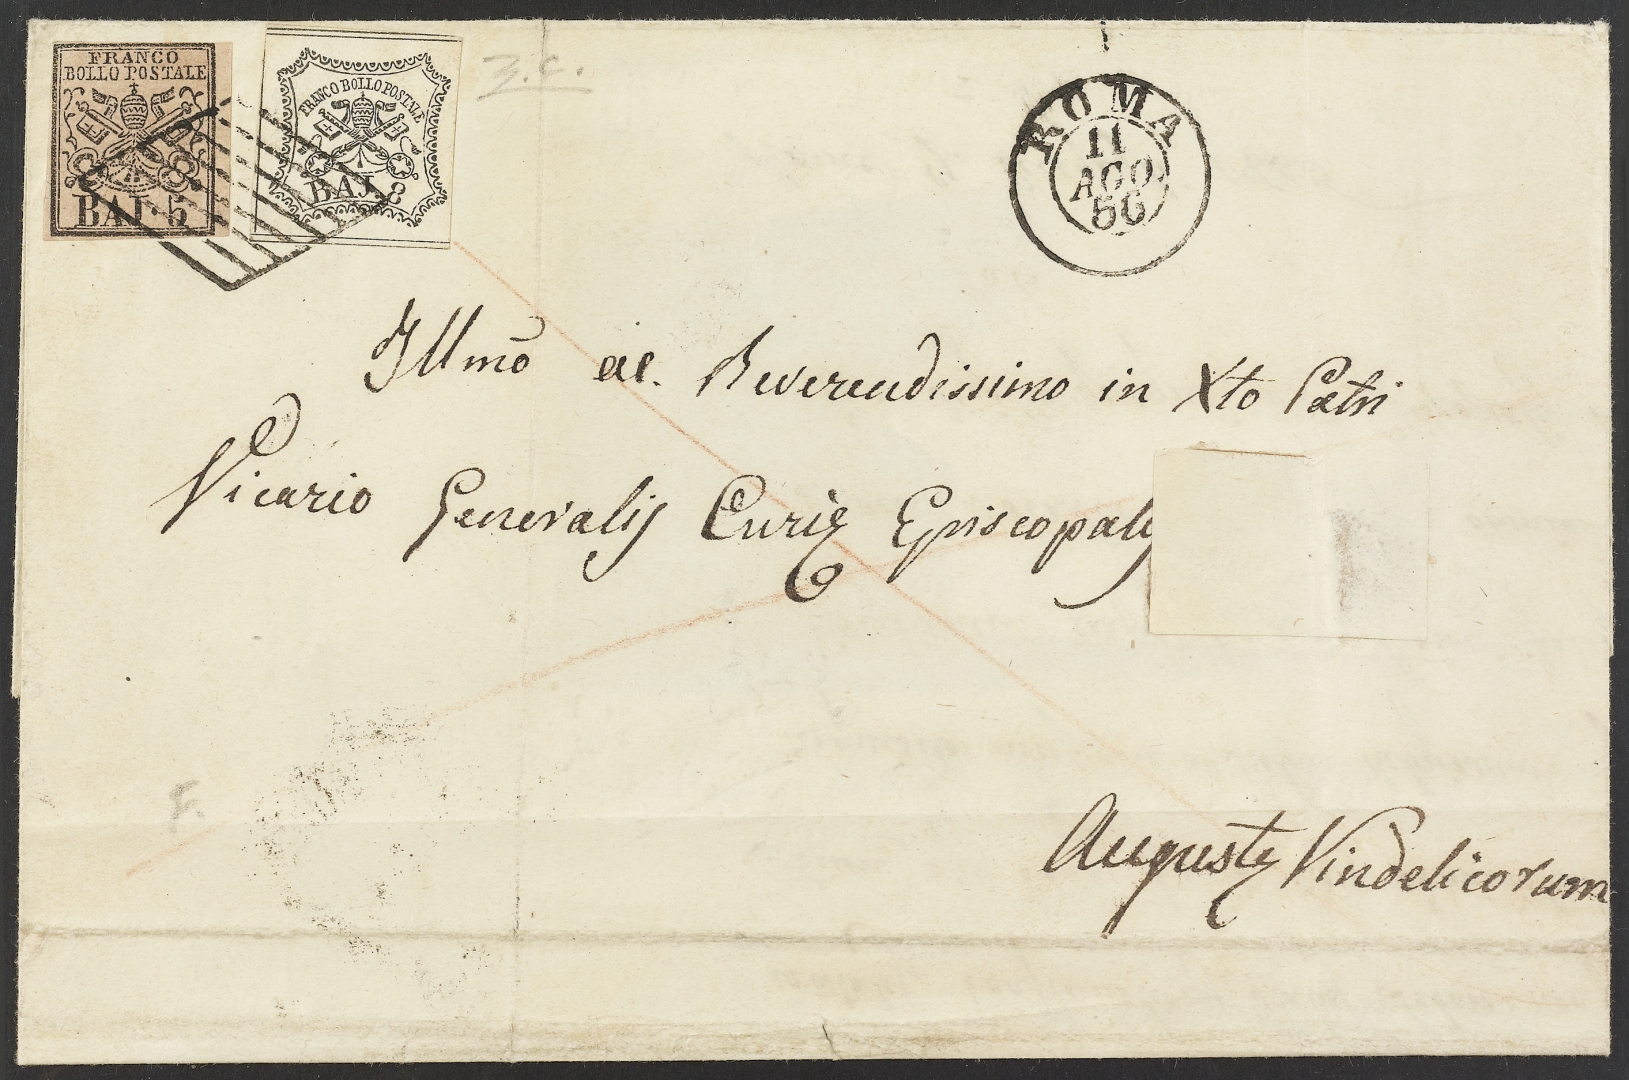 FRANCO
BOLLO POSTALE
BAJ. 5
FRANCO BOLLO POSTALE
BAJ. 8
ROMA
11
AGO
56
Illmo ac. Reverendissimo in Xto Patri
Vicario Generalis Curię Episcopalis
Augustę Vindelicorum
F.